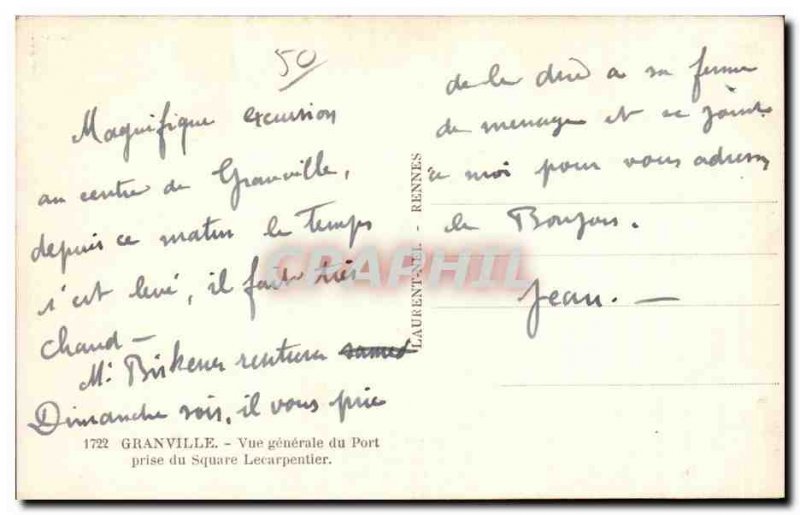 50
Magnifique excursion
au centre de Granville,
depuis ce matin le temps
s'est levé, il fait très
chaud —
Mr rentrera samedi
Dimanche soir, il vous prie
de le dire à sa femme
de ménage et se joint
à moi pour vous adresser
le Bonjour.
Jean. —
LAURENT-NEL. - RENNES
CPAPHIL
1722 GRANVILLE. - Vue générale du Port
prise du Square Lecarpentier.